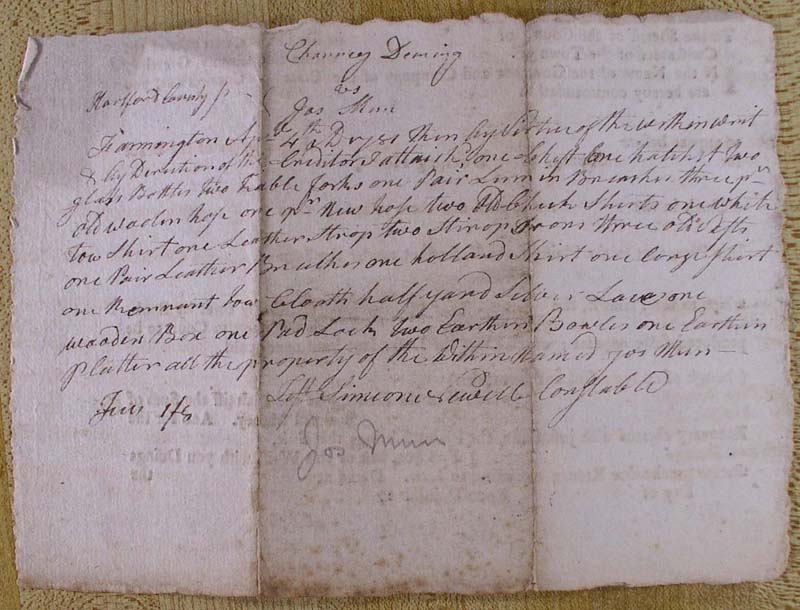 Chauncey Deming
vs
Hartford County ss
Jos Mun
Farmington 4th Then by Virtue of the within writ
& by Direction of the Creditor I attach'd one Chest one hatchet two
glass Bottles two Table forks one Pair Linnen Breaches three pr
old woolen hose one pr New hose two old Check Shirts one white
tow Shirt one Leather Strap two Stirrop Irons three old Vests
one Pair Leather Breaches one holland Shirt one Shirt
one Remnant Tow Cloath half yard Silver Lace one
wooden Box one Pad Lock two Earthen Bowles one Earthen
Platter all the property of the Within Named Jos Mun
Test Simeon Constable
Fees
Jos Mun